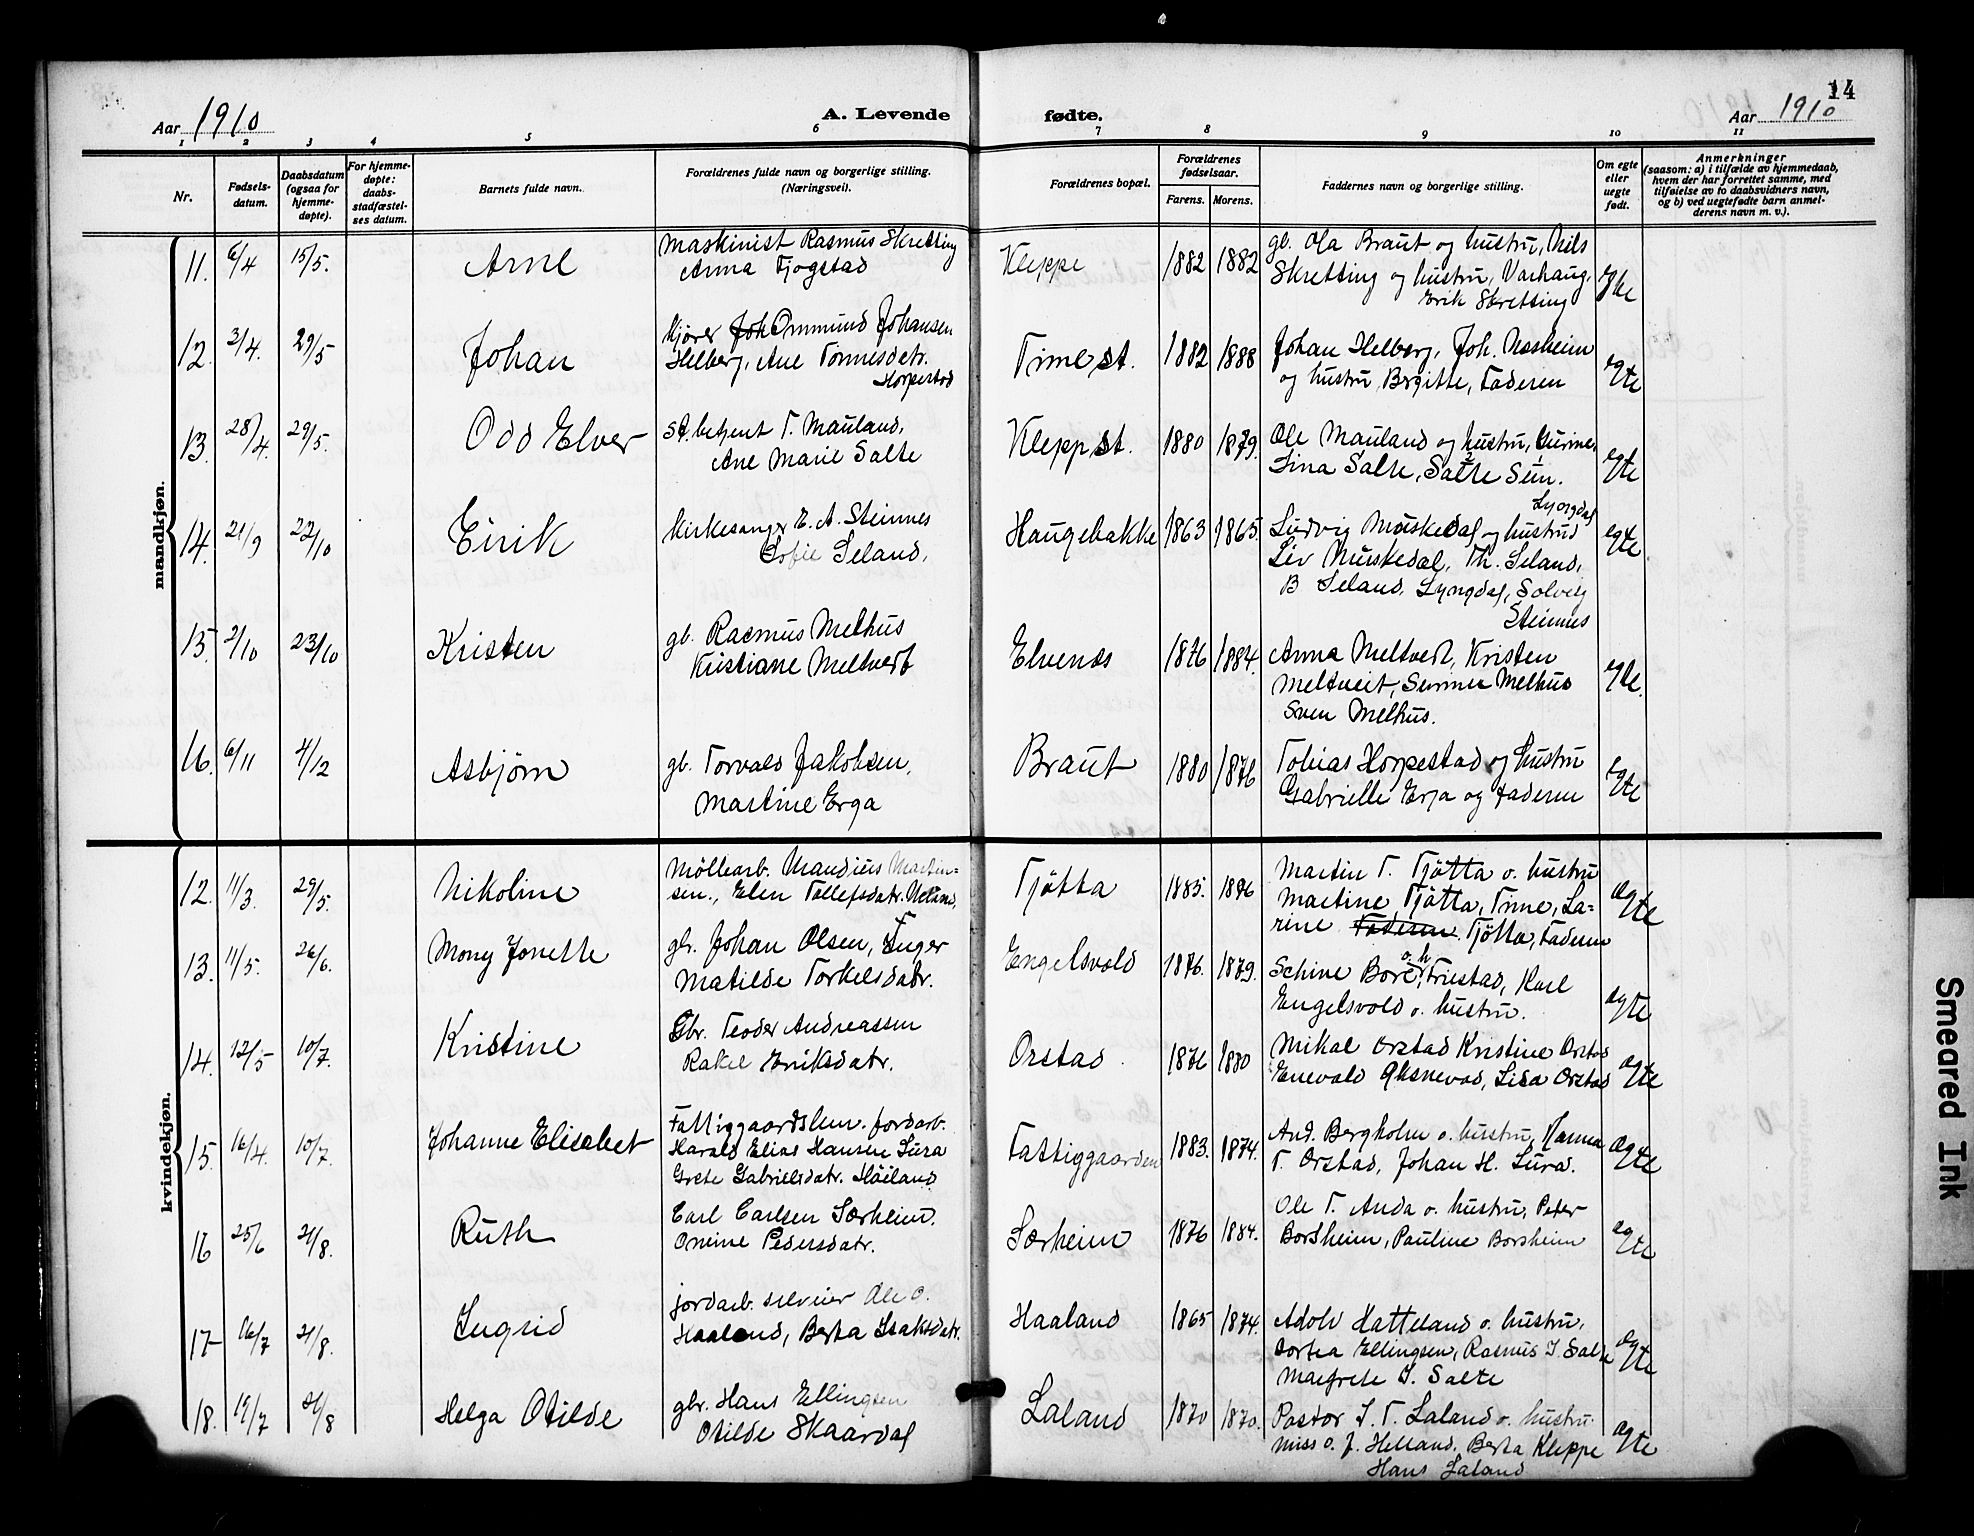 14
Aar 1910
A. Levende fødte.
Aar 1910
1 2 3 4 5 6 7 8 9 10 11
Nr.
Fødsels-
datum.
Daabsdatum
(ogsaa for
hjemme-
døpte).
For hjemme-
døpte:
daabs-
stadfæstel-
ses datum.
Barnets fulde navn.
Forældrenes fulde navn og borgerlige stilling.
(Næringsvei).
Forældrenes bopæl.
Forældrenes
fødselsaar.
Farens. Morens.
Faddernes navn og borgerlige stilling.
Om egte
eller
uegte
født.
Anmerkninger
(saasom: a) i tilfælde av hjemmedaab,
hvem der har forrettet samme, med
tilføielse av to daabsvidners navn,
og b) ved uegtefødte barn anmel-
derens navn m. v.).
mandkjøn.
11. 6/4 15/5. Arne
Maskinist Rasmus Skretting
Anna Tjogstad
Kleppe 1882 1882
gb. Ola Braut og hustru, Nils
Skretting og hustru, Varhaug.
Erik Skretting
egte
12. 3/4. 29/5 Johan
Kjører Joh Ommund Johansen
Helberg, Ane Tønnesdatr.
Horpestad
Time st. 1882 1888
Johan Helberg, Joh. Næsheim
og hustru Bergitte, Faderen
egte
13. 28/4. 29/5. Odd Elver
St. betjent T. Mauland,
Ane Marie Salte
Klepp st. 1880 1879.
Ole Mauland og hustru,
Lina Salte, Salte
egte
14. 21/9 22/10 Eirik
Kirkesanger E. A. Steinnes
Sofie Seland,
Haugebakke 1863 1865.
Lyngdal
Ludvig Muskedal og hustru
Liv Muskedal, Th. Seland,
B Seland, Lyngdal, Solveig
Steinnes
egte
15. 2/10 23/10 Kristen
gb. Rasmus Melhus
Kristiane Meltveit
Elvenes 1876 1884.
Anna Meltveit, Kristen
Meltveit, Melhus
Sven Melhus.
egte.
16. 6/11 4/12 Asbjørn
gb. Torvald Jakobsen,
Martine Erga
Braut 1880 1876
Tobias Horpestad og hustru
Gabrielle Erga og Faderen
egte
kvindekjøn.
12. 11/3. 29/5. Nikoline
Møllearb. Mandius Martin-
sen., Elen Tollefsdatr.
Tjøtta 1885. 1886
Martin T. Tjøtta o. hustru
Martine Tjøtta, Time, La-
rine Faderen Tjøtta, Faderen
egte
13. 11/5. 26/6. Mony Jonette
gbr. Johan Olsen,
Matilde Torkelsdatr.
Engelsvold 1876. 1879.
o. h
Schine Bore, Friestad, Karl
Engelsvold o. hustru.
egte
14. 12/5 10/7. Kristine
Gbr. Teodor Andreassen
Rakel Eriksdatr.
Orstad 1876 1880
Mikal Orstad Kristine Orstad
Enevald Øksnevad, Lisa Orstad
egte
15. 16/4. 10/7. Johanne Elisabet
Fattiggaardslem. jordarb.
Harald Elias Hansen Lura
Grete Gabrielsdatr. Høiland
Fattiggaarden 1883. 1874.
And. Bergholm o. hustru, Hanna
T. Orstad, Johan H. Lura.
egte
16 25/6 21/8. Ruth
Carl Carlsen Særheim.
Onine Pedersdatr.
Særheim 1876 1884.
Ole T. Anda o. hustru, Peter
Borsheim, Pauline Borsheim
egte
17 16/7 21/8. Ingrid
jordarb. selveier Ole O.
Haaland, Berta Isaksdatr.
Haaland 1865 1874.
Adolv Hatteland o. hustru,
Dortea Ellingsen, Rasmus I. Salte
Margrete I. Salte
egte
18. 19/7 21/8 Helga Otilde
gbr. Hans Ellingsen
Otilde Skaardal
Laland 1870 1870.
Pastor S. T. Laland o. hustru
miss o. J. Helland. Berta Kleppe
Hans Laland
egte
Smeared Ink